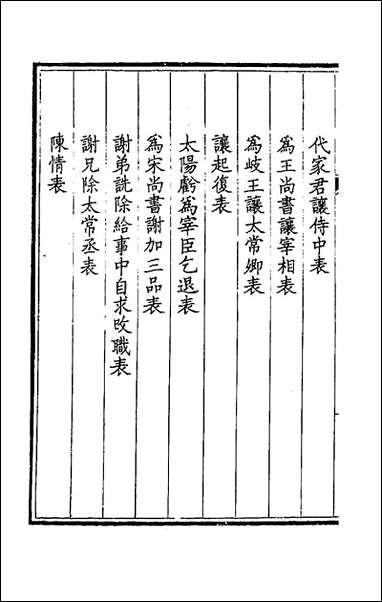 代家君讓侍中表
爲王尚書讓宰相表
爲岐王讓太常卿表
讓起復表
太陽虧爲宰臣乞退表
爲宋尚書謝加三品表
謝弟詵除給事中自求改職表
謝兄除太常丞表
陳情表